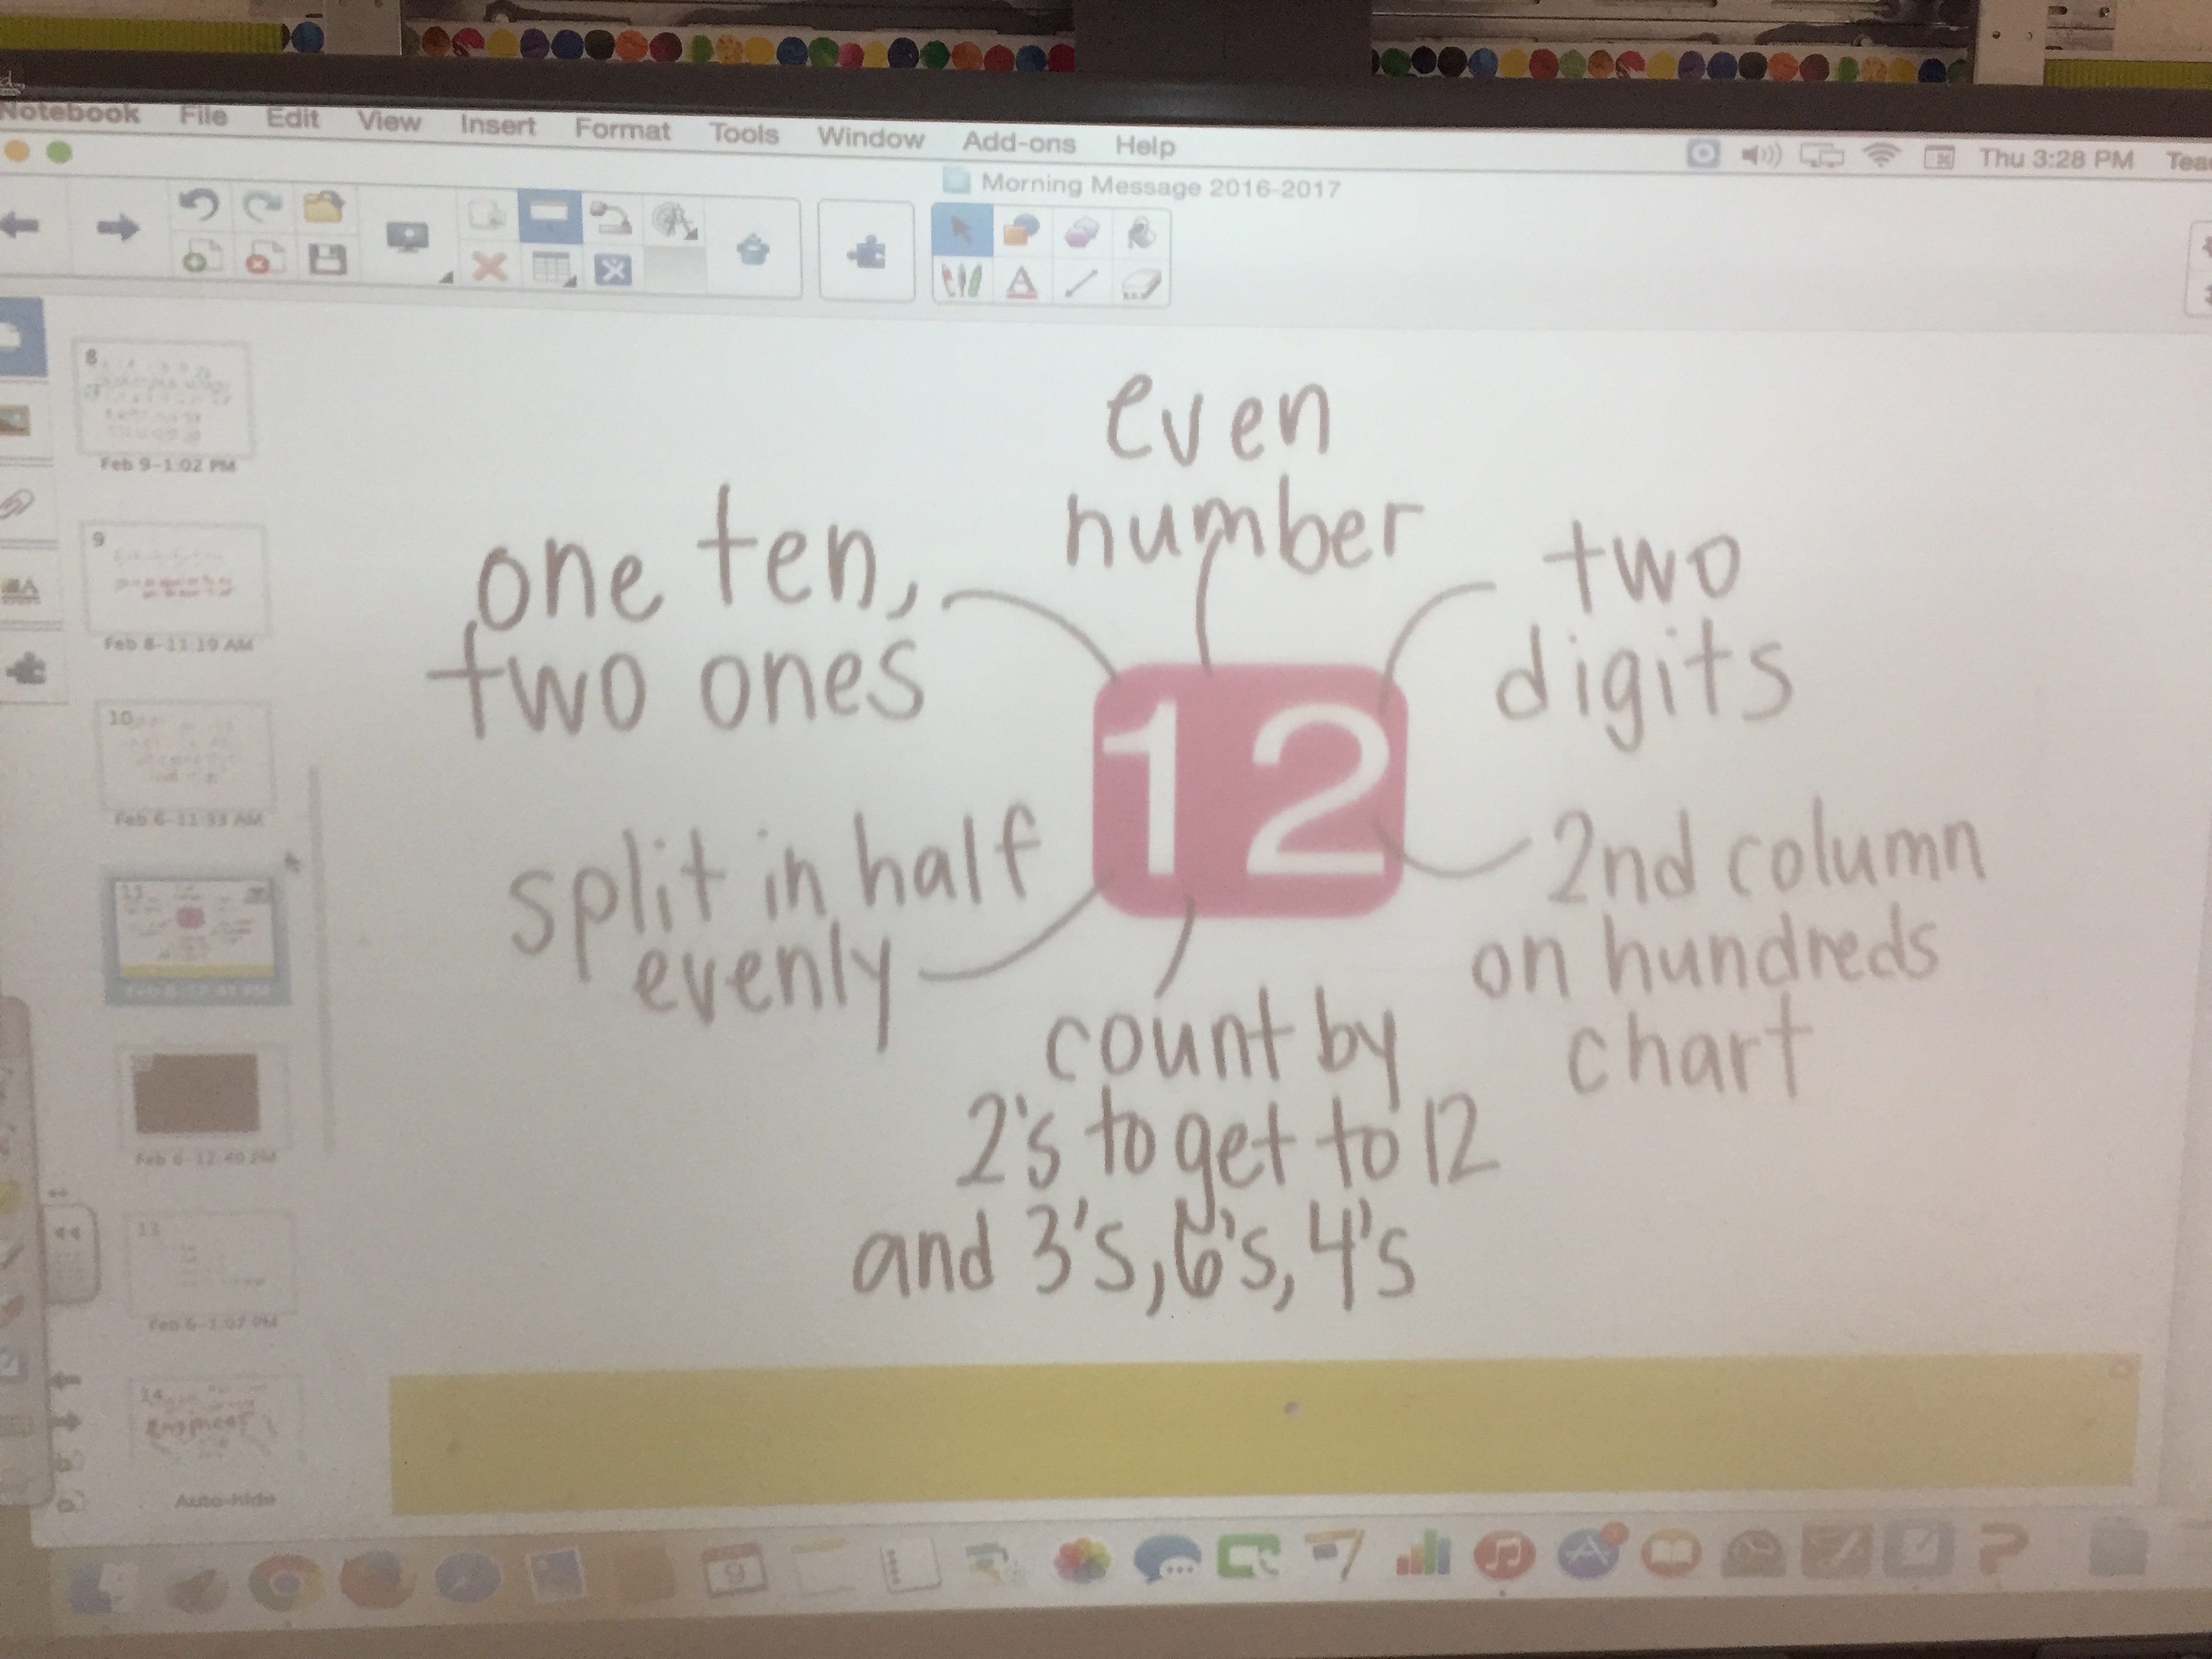 Notebook File Edit View Insert Format Tools Window Add-ons Help
Thu 3:28 PM
Morning Message 2016-2017
8
Feb 9-1:02 PM
9
Feb 8-11:19 AM
10
Feb 6-11:33 AM
11
Feb 6-12:40 PM
13
Feb 6-1:07 PM
14
Auto-hide
even
number
one ten,
two ones
two
digits
12
split in half
evenly
2nd column
on hundreds
chart
count by
2's to get to 12
and 3's, 6's, 4's
9